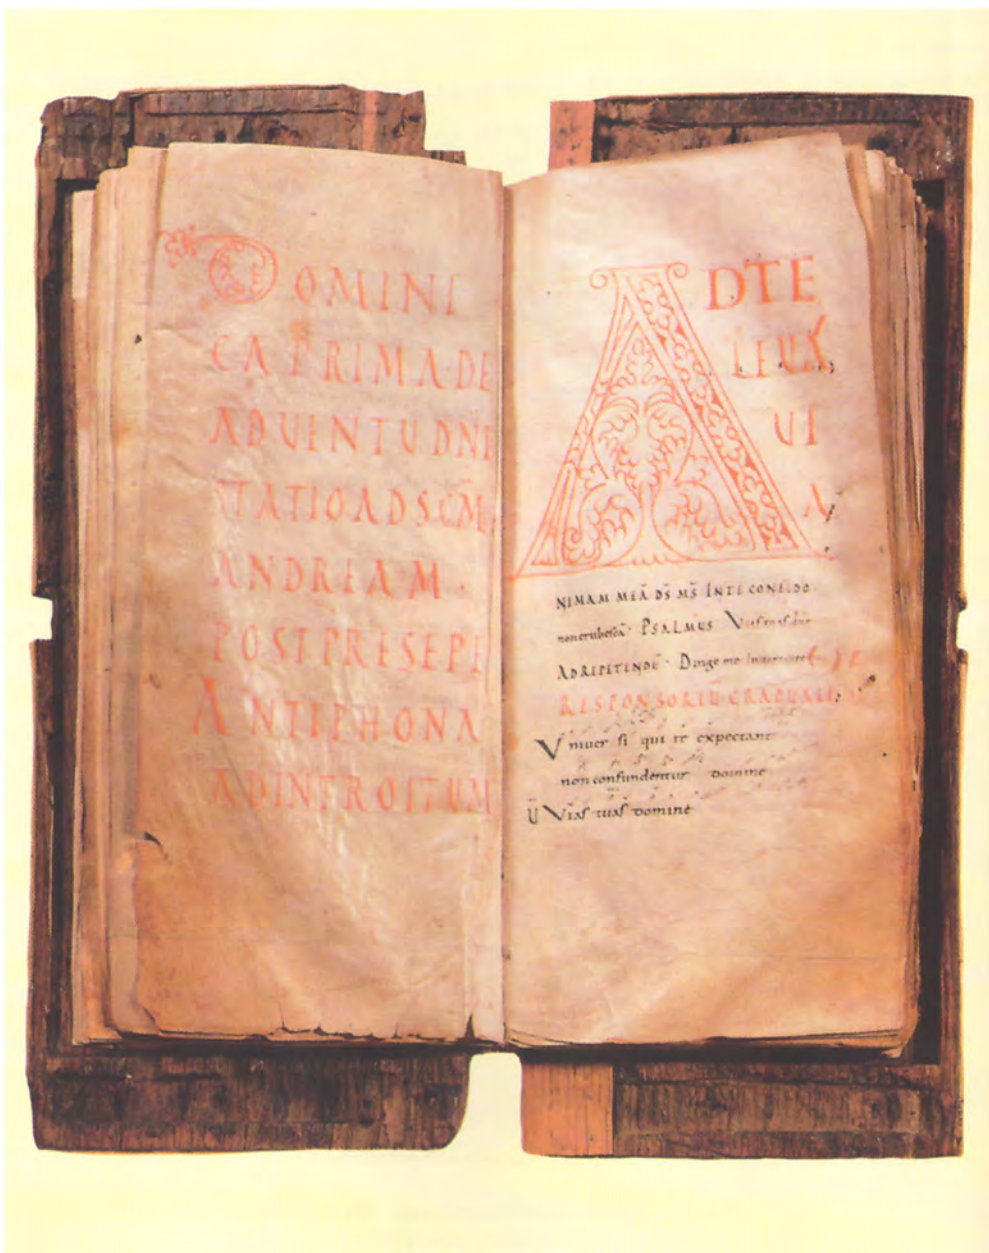 DOMINI
CA PRIMA·DE
ADUENTU DNI
STATIO AD SCM̄
ANDREAM·
POST PRESEPE
ANTIPHONA
AD INTROITUM
AD TE
LEUA
UI
A
NIMAM MEĀ DS̄ MS̄ INTE CONFIDO
non erubescā· PSALMUS Vias tuas dn̄e
AD REPETENDŪ· Dirige me In
RESPONSORIŪ GRADUALE
Vniuer si qui te expectant
non confundentur domine
Ū Vias tuas domine